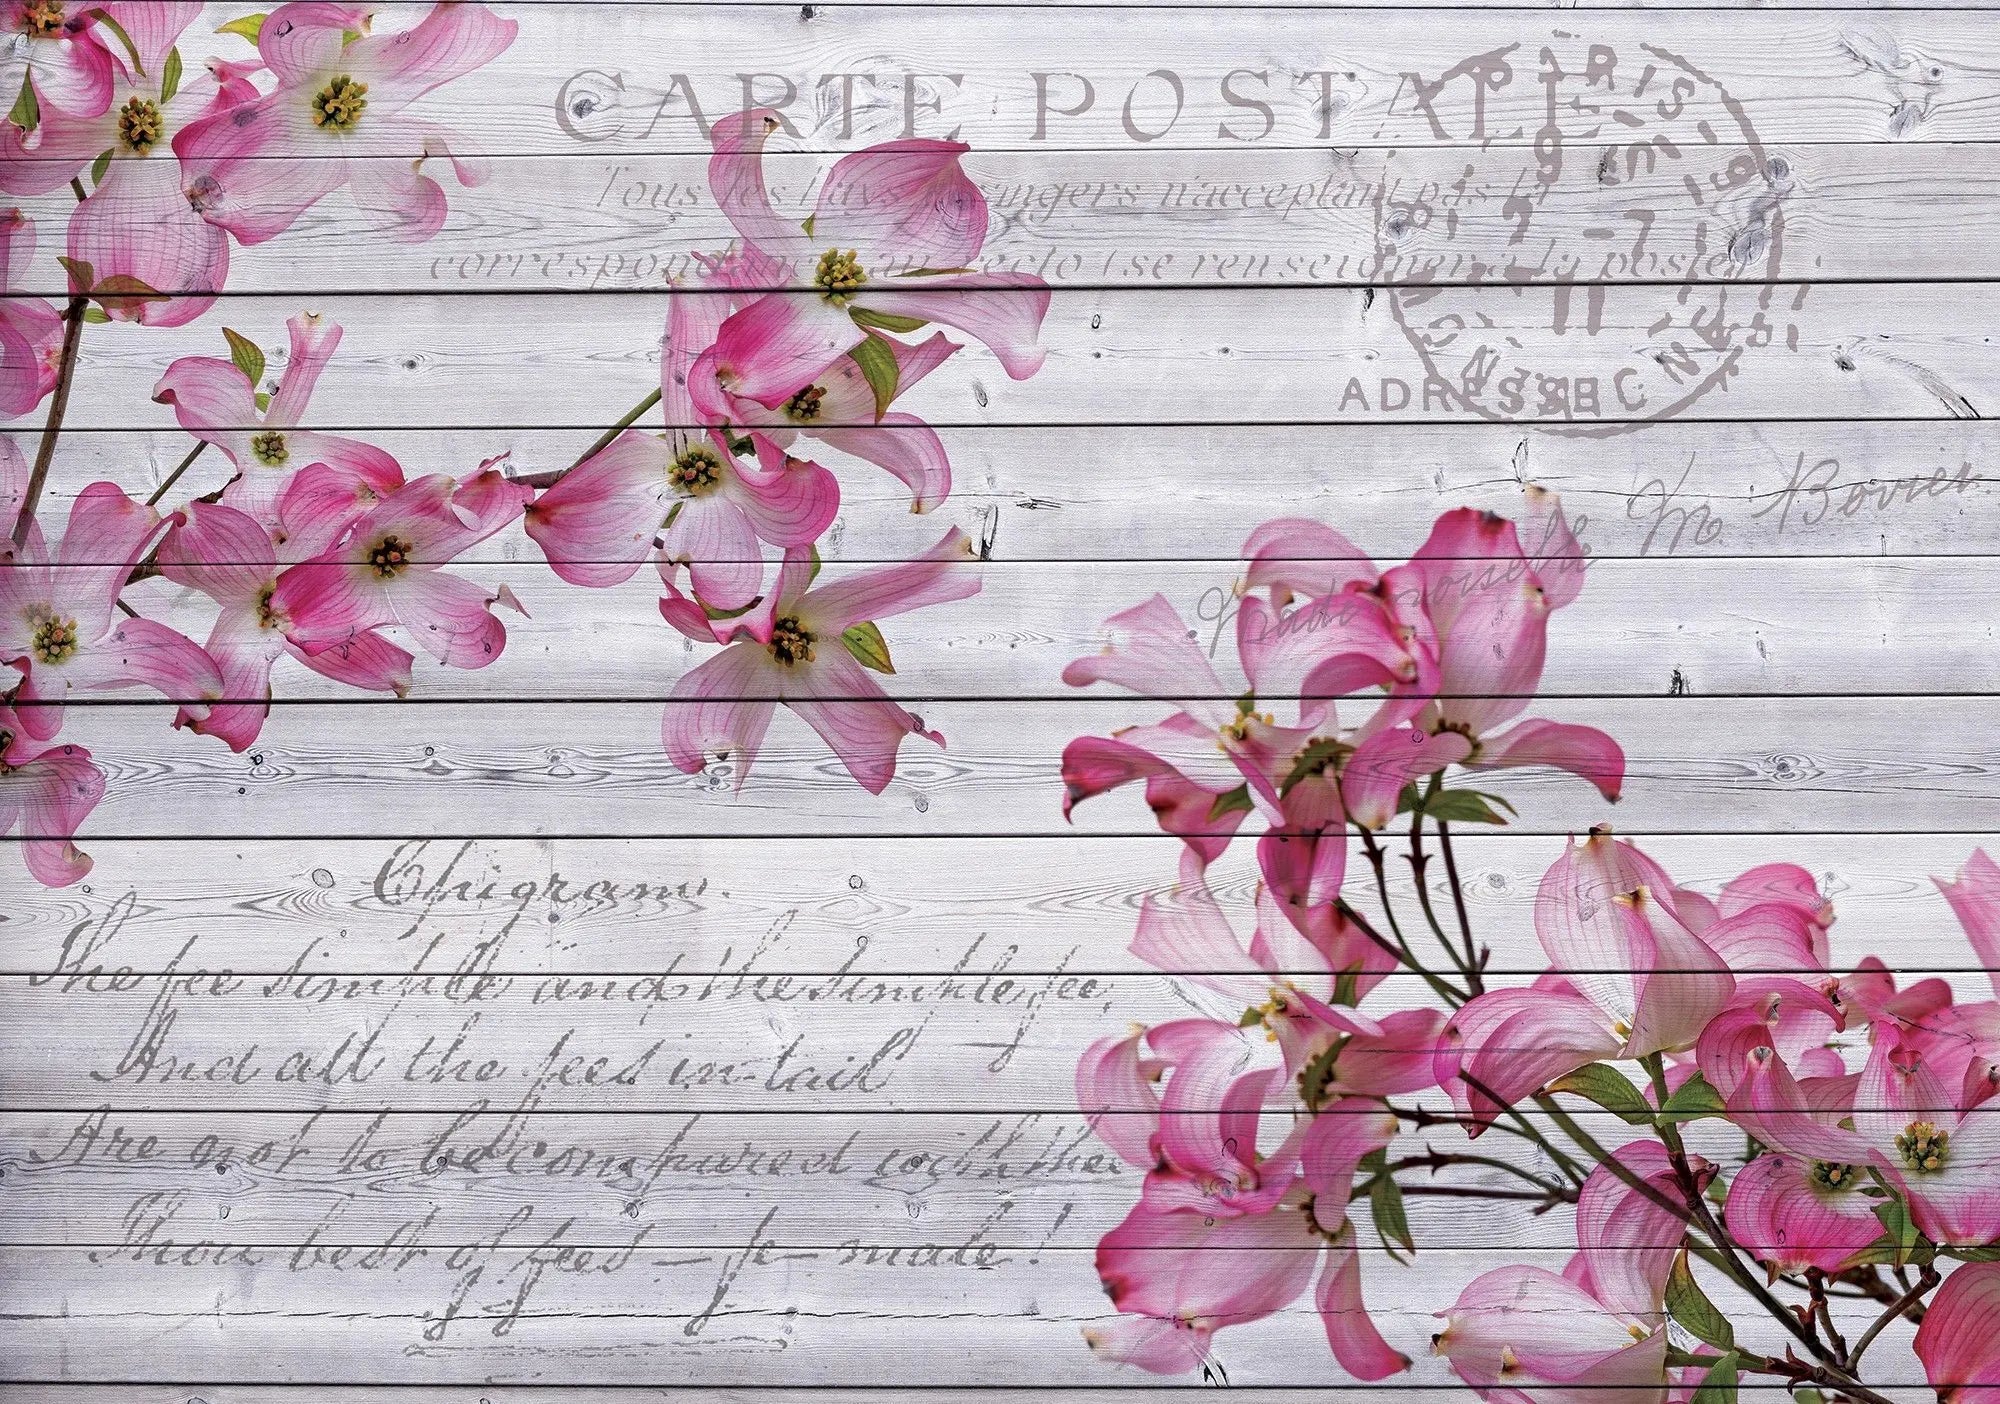 CARTE POSTALE
Tous les Pays étrangers n'acceptant pas la
correspondance au recto (se renseigner à la poste)
PARIS
7 -7
11
ADRESSE
Mademoiselle M Bovier
Epigram.
The fee simple and the simple fee,
And all the fees in tail
Are not to be compared with thee
Thou best of fees — fe-male!